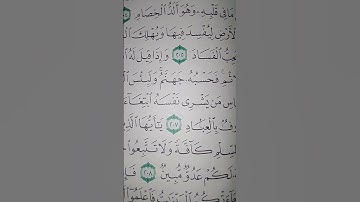 مَا فِي قَلْبِهِۦ وَهُوَ أَلَدُّ ٱلْخِصَامِ
ٱلْأَرْضِ لِيُفْسِدَ فِيهَا وَيُهْلِكَ
ٱلْفَسَادَ ٢٠٥ وَإِذَا قِيلَ لَهُ
فَحَسْبُهُۥ جَهَنَّمُ وَلَبِئْسَ
مَن يَشْرِى نَفْسَهُ ٱبْتِغَآءَ
بِٱلْعِبَادِ ٢٠٧ يَٰٓأَيُّهَا ٱلَّذِي
كَآفَّةً وَلَا تَتَّبِعُوا۟
لَكُمْ عَدُوٌّ مُّبِينٌ ٢٠٨ فَإِ
ٱلْبَيِّنَٰتُ فَٱعْلَمُوٓا۟